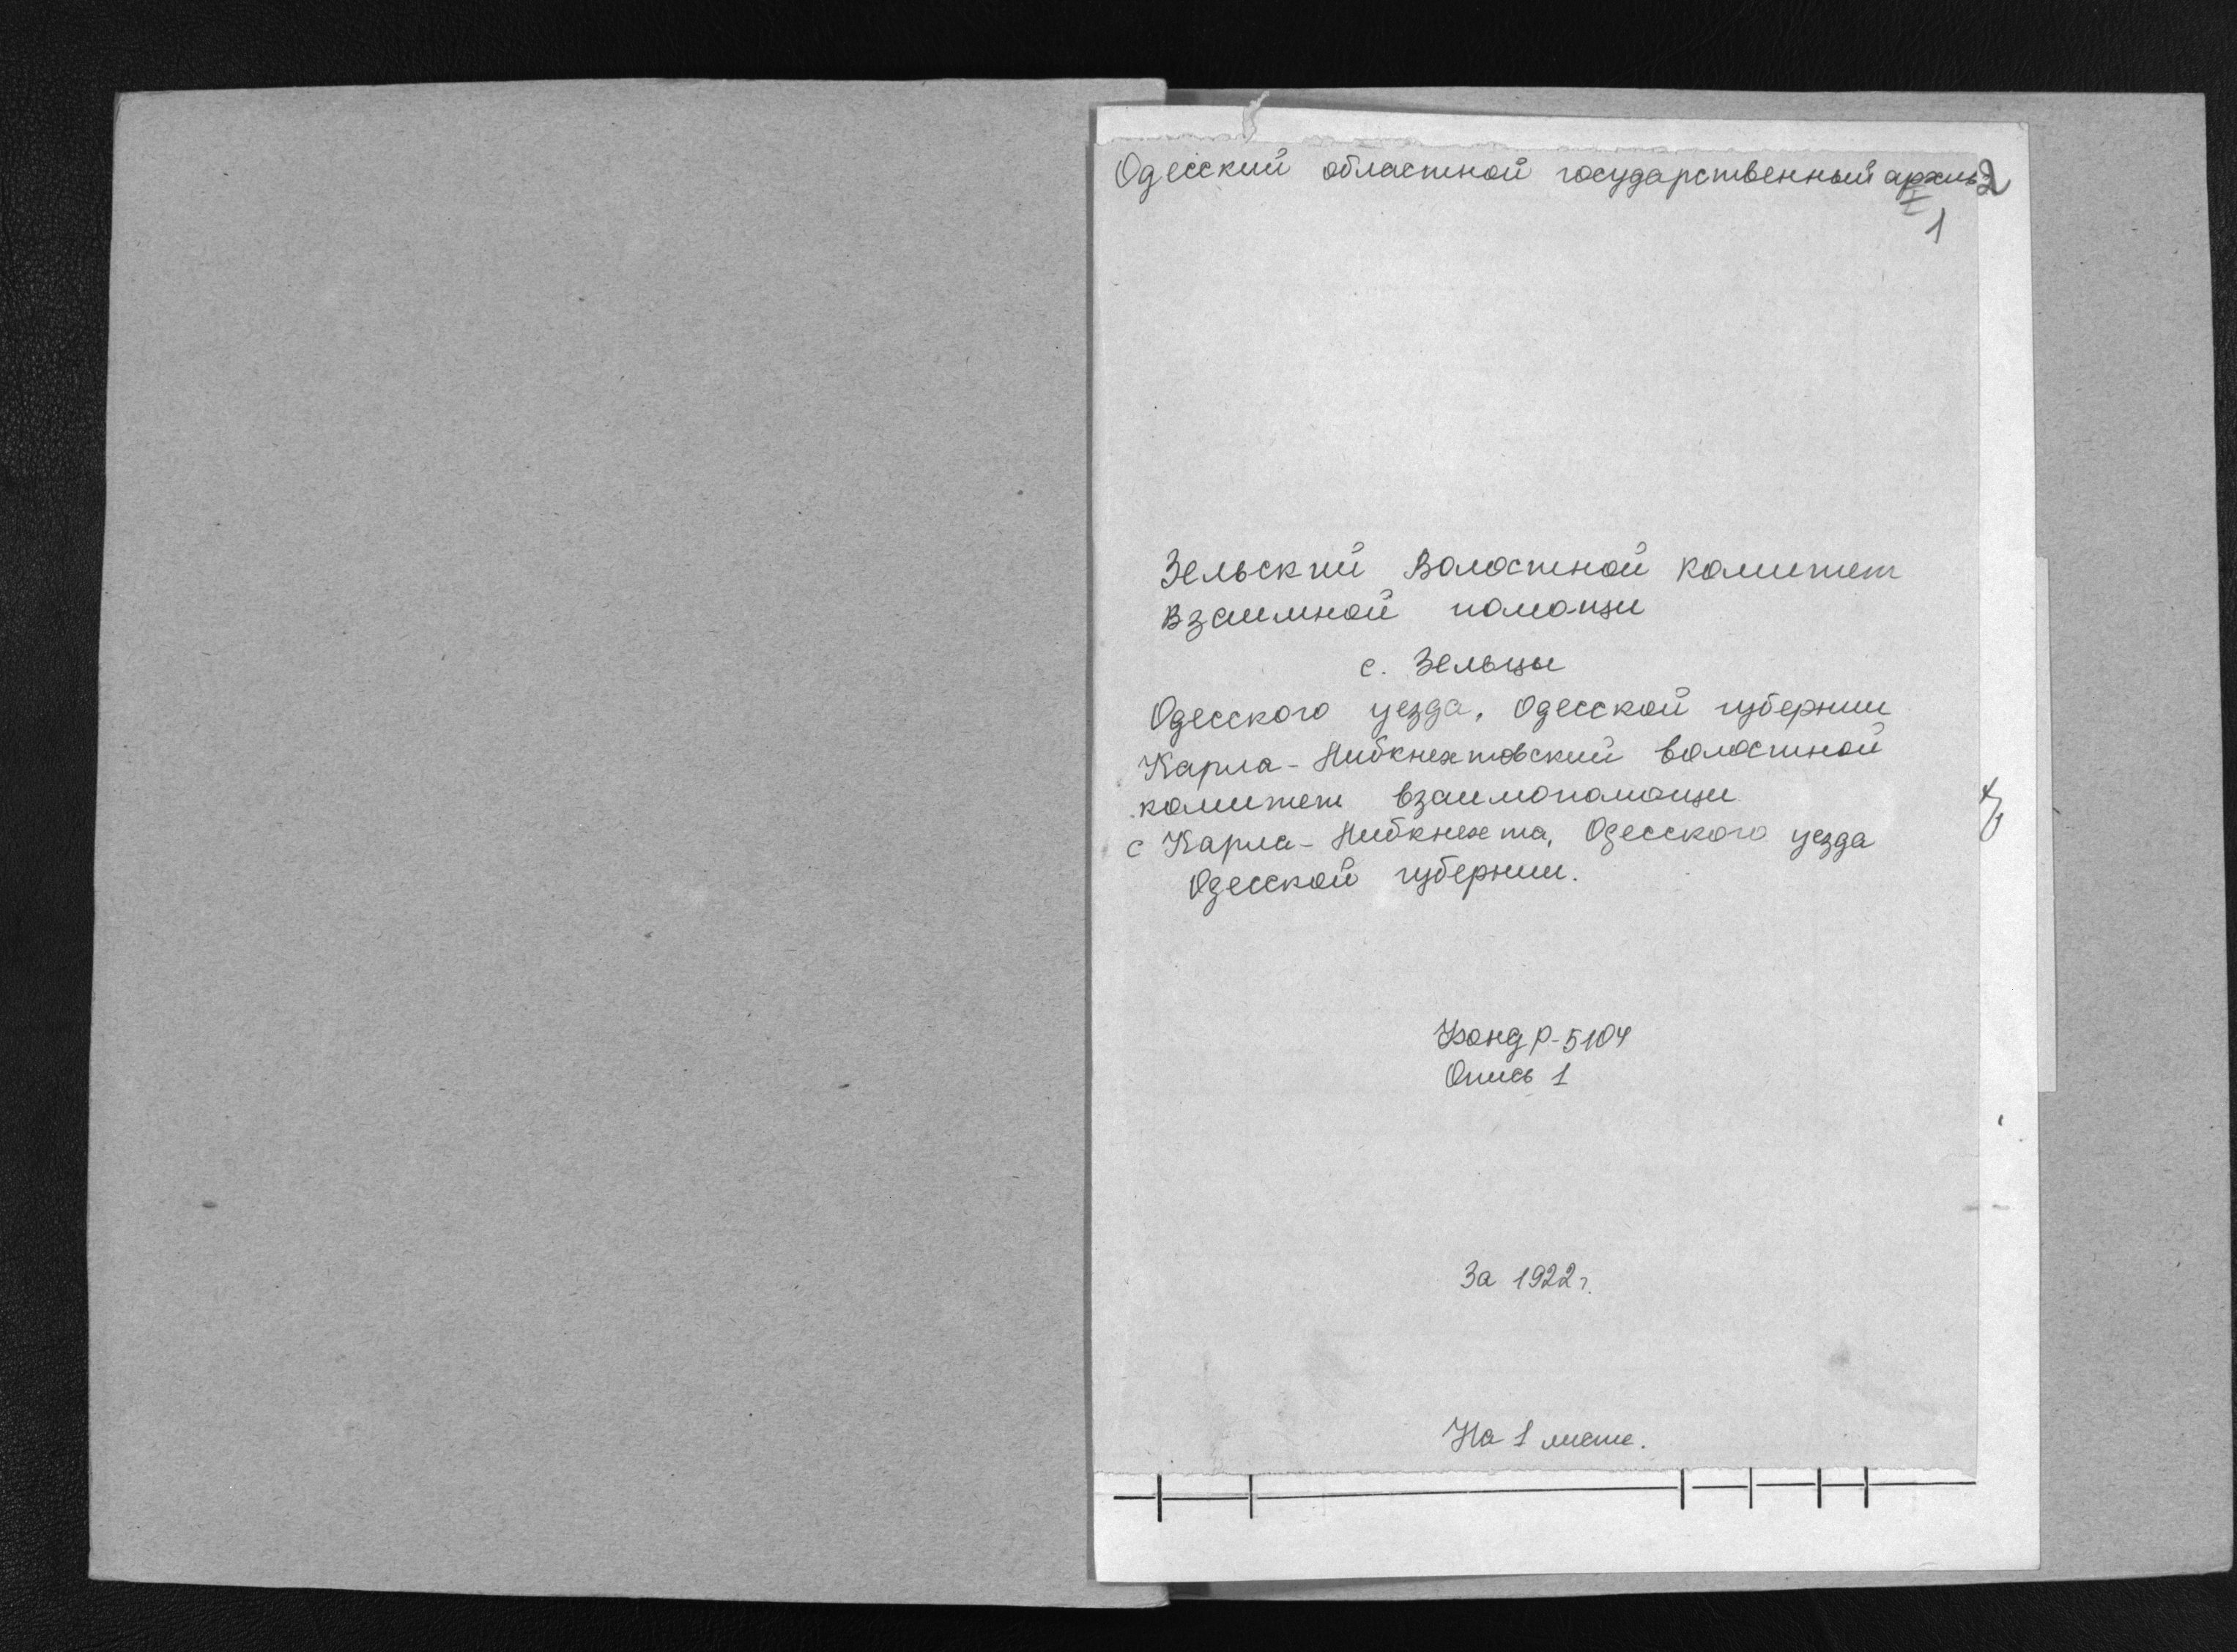 Одесский областной государственный архив
2
1
Зельский Волостной комитет
Взаимной помощи
с. Зельцы
Одесского уезда, Одесской губернии
Карла-Либкнехтовский волостной
комитет взаимопомощи
с Карла-Либкнехта, Одесского уезда
Одесской губернии.
Фонд Р-5104
Опись 1
За 1922 г.
На 1 листе.